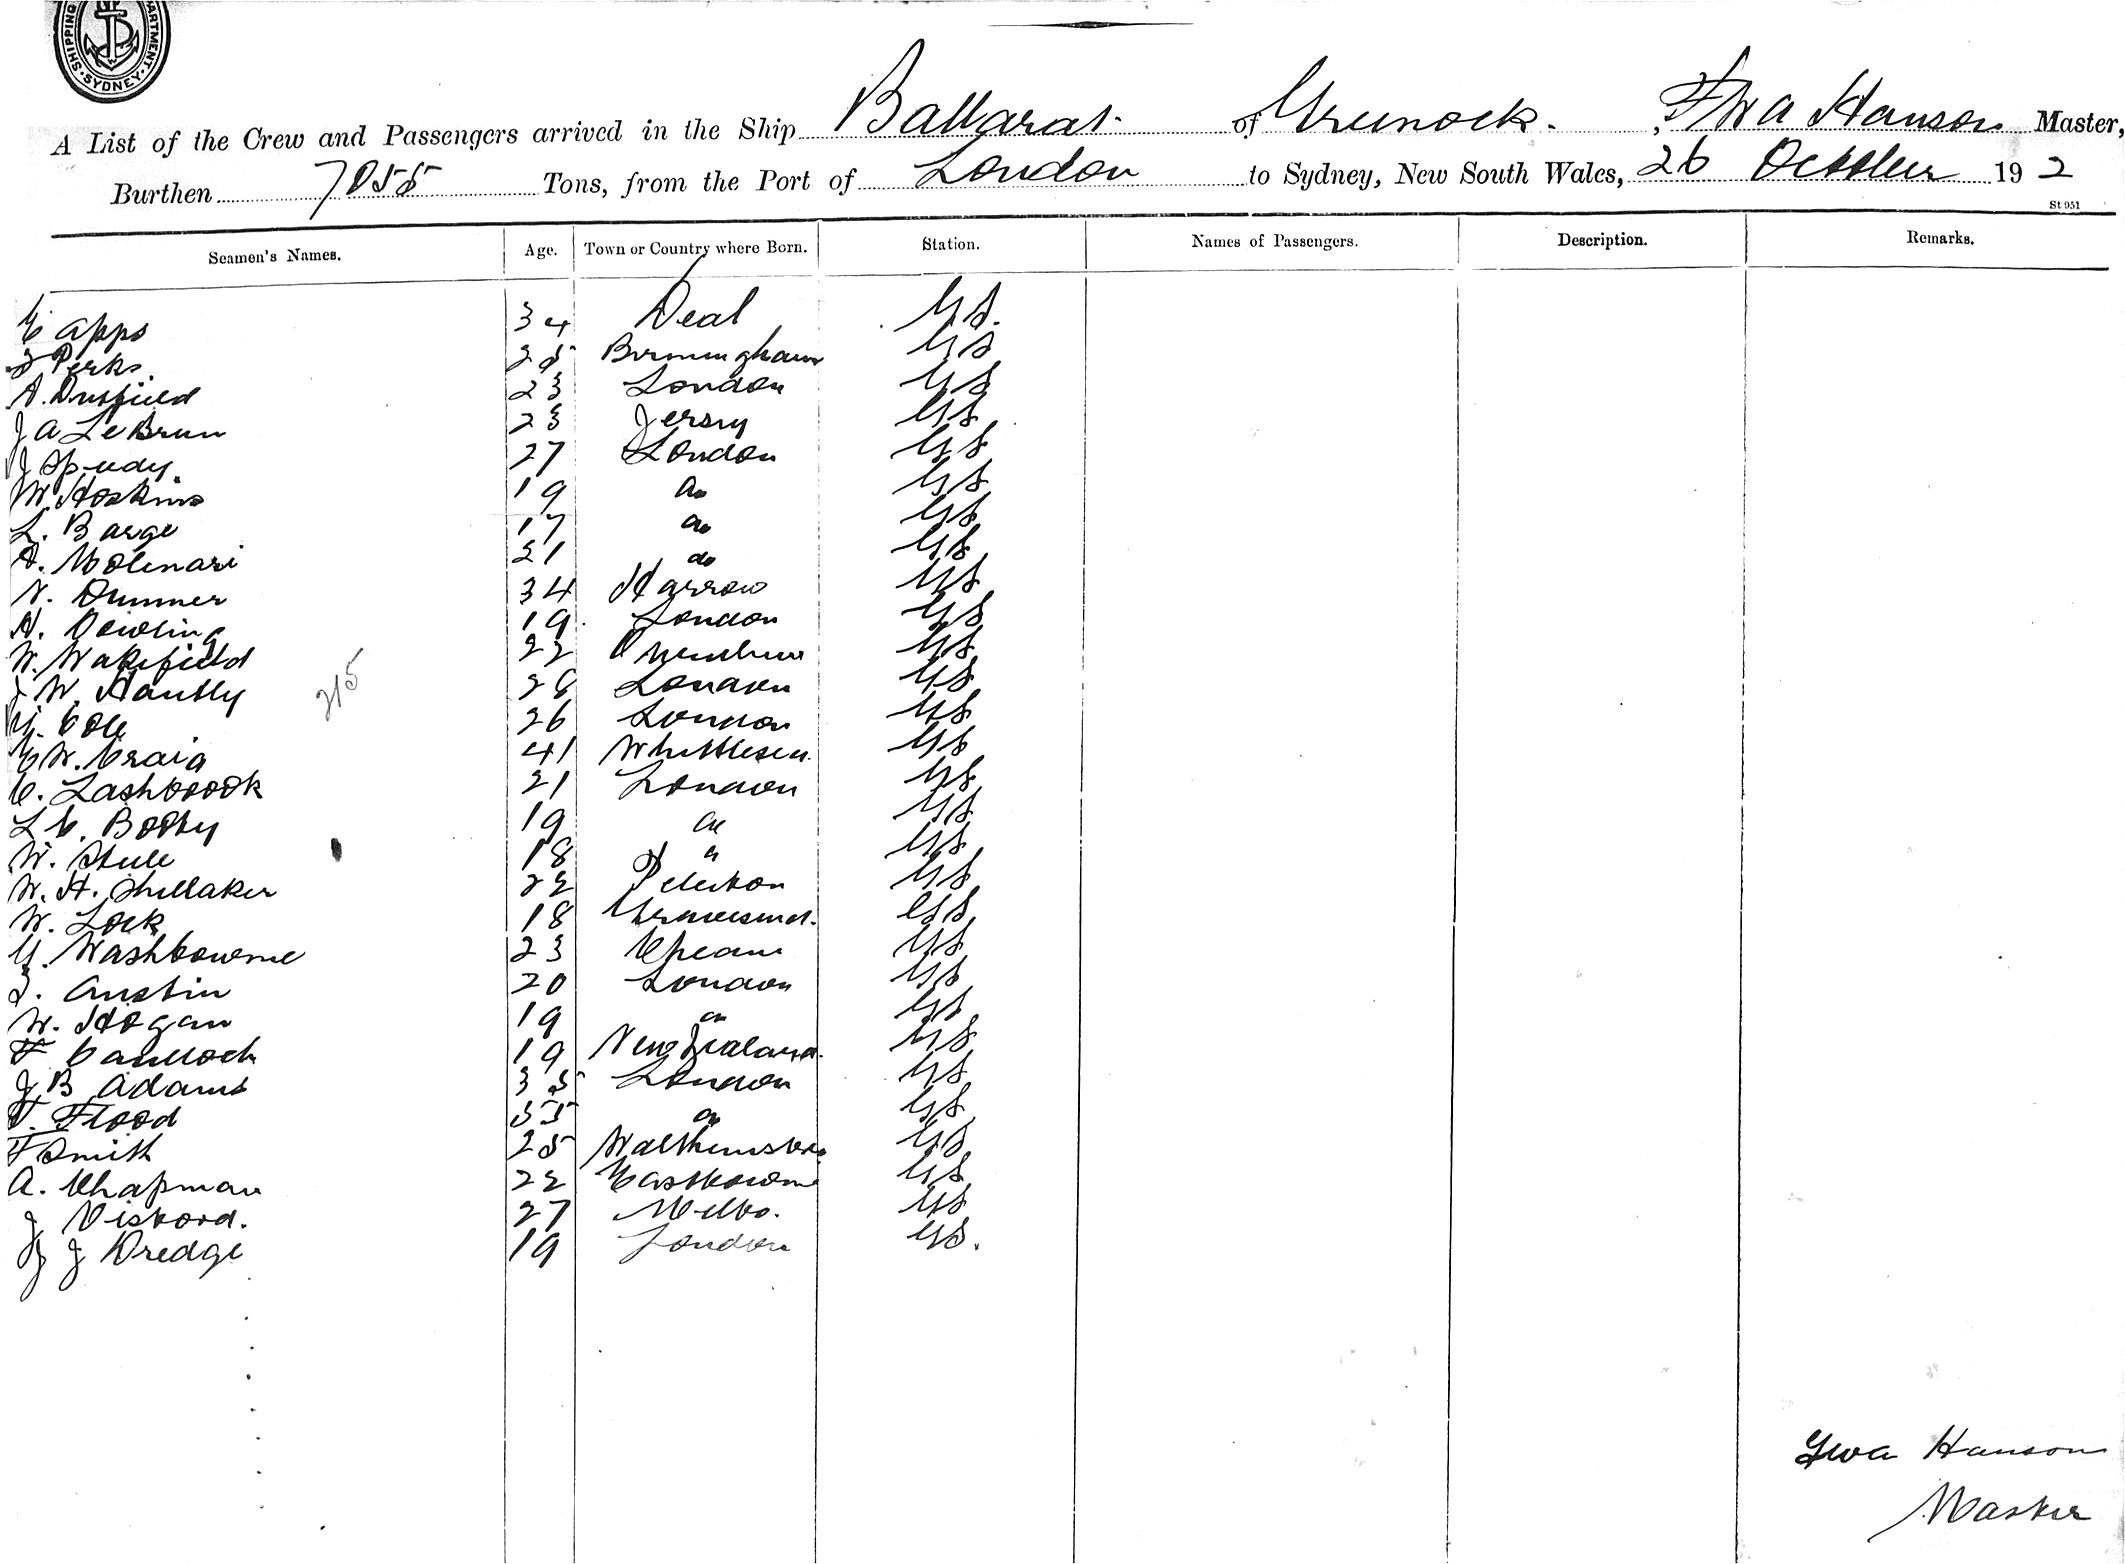 SHIPPING DEPARTMENT SYDNEY
A List of the Crew and Passengers arrived in the Ship Ballarat of Greenock. , F W A Hanson Master,
Burthen 7055 Tons, from the Port of London to Sydney, New South Wales, 26 October 192
St 951
Seamen's Names. Age. Town or Country where Born. Station. Names of Passengers. Description. Remarks.
E Apps 34 Deal GS.
J Perks. 25 Birmingham GS
A. Duffield 23 London GS
J A Le Brun 23 Jersey GS
J Speedy 27 London GS
W. Hoskins 19 do GS
L. Barge 17 do GS
A. Molenari 21 do GS
N. Dummer 34 Harrow GS
H. Dowling 19 London GS
W. Wakefield 22 GS
J W. Hantly 28 London GS
215
G. Cole 26 London GS
E W. Craig 41 Whittlesea. GS
C. Lashbrook 21 London GS
L C. Botty 19 do GS
W. Steele 18 " GS
W. H. Shillaker 22 GS
W. Lock 18 Gravesend. GS
G. Washbourne 23 Cheam GS
J. Austin 20 London GS
W. Hogan 19 do GS
F 19 New Zealand. GS
J B Adams 35 London GS
T. Flood 55 do GS
F Smith 25 Walthamstow GS
A. Chapman 22 Eastbourne GS
J Viscord. 27 Melbo. GS
J J Dredge 19 London GS.
Fwa Hanson
Master